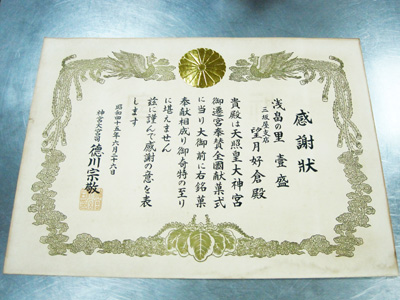 感謝狀
浅畠の里 壹盛
三坂屋支店
望月好倉殿
貴殿は天照皇大神宮
御遷宮奉賛全國献菓式
に当り大御前に右銘菓
奉献相成り御奇特の至り
に堪えません
茲に謹んで感謝の意を表
します
昭和四十五年六月二十六日
神宮大宮司 徳川宗敬